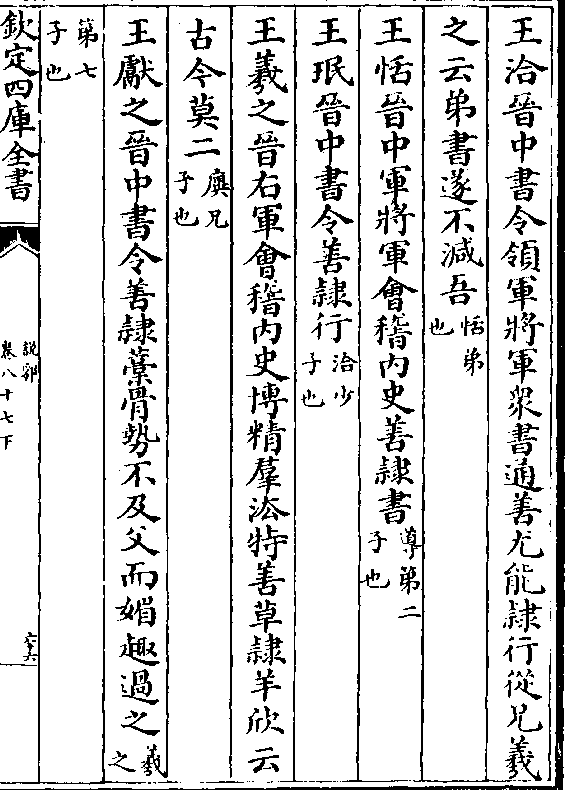 王洽晉中書令領軍將軍衆書通善尤能隸行從兄羲
之云弟書遂不減吾恬弟也
王恬晉中軍將軍會稽內史善隸書導第二子也
王珉晉中書令善隸行洽少子也
王羲之晉右軍會稽內史博精羣法特善草隸羊欣云
古今莫二廙兄子也
王獻之晉中書令善隸藁骨勢不及父而媚趣過之羲之
第七子也
欽定四庫全書
說郛
卷八十七下
六十六